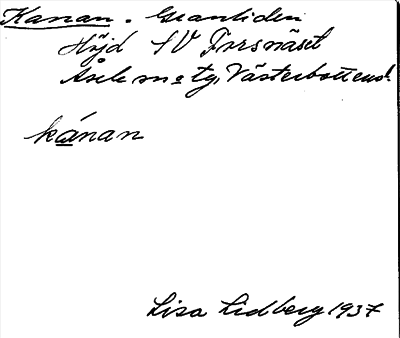 Kanan. Granliden
Höjd SV Forsnäset
Åsele sn o tg, Västerbottens l.
kánan
Lisa Lidberg 1937